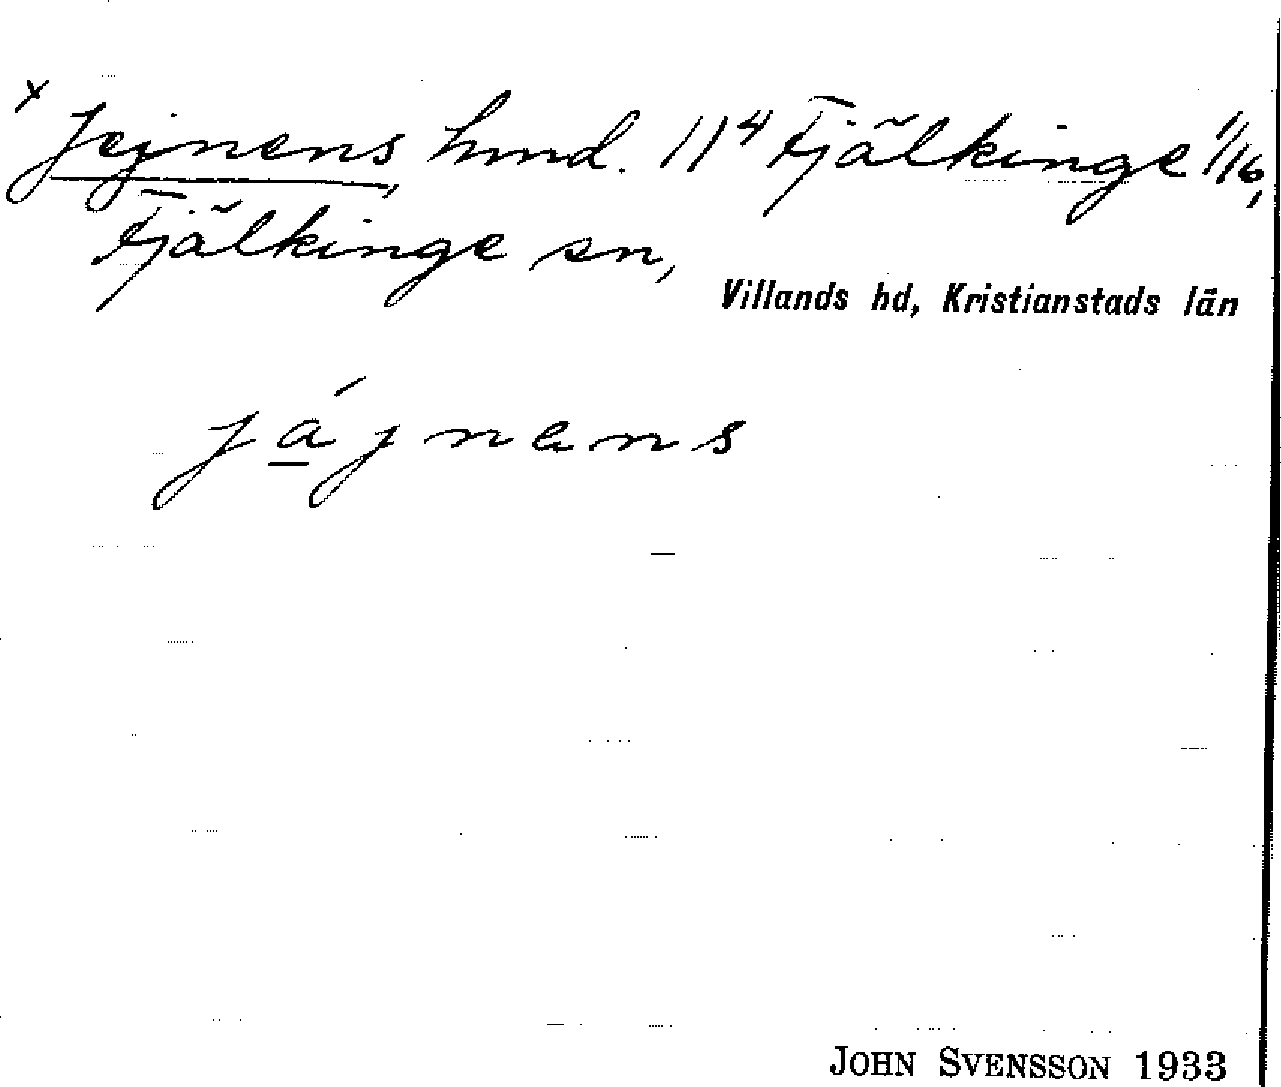 x Jejnens, hmd. 11⁴ Fjälkinge 1/16,
Fjälkinge sn,
Villands hd, Kristianstads län
jájnens
JOHN SVENSSON 1933